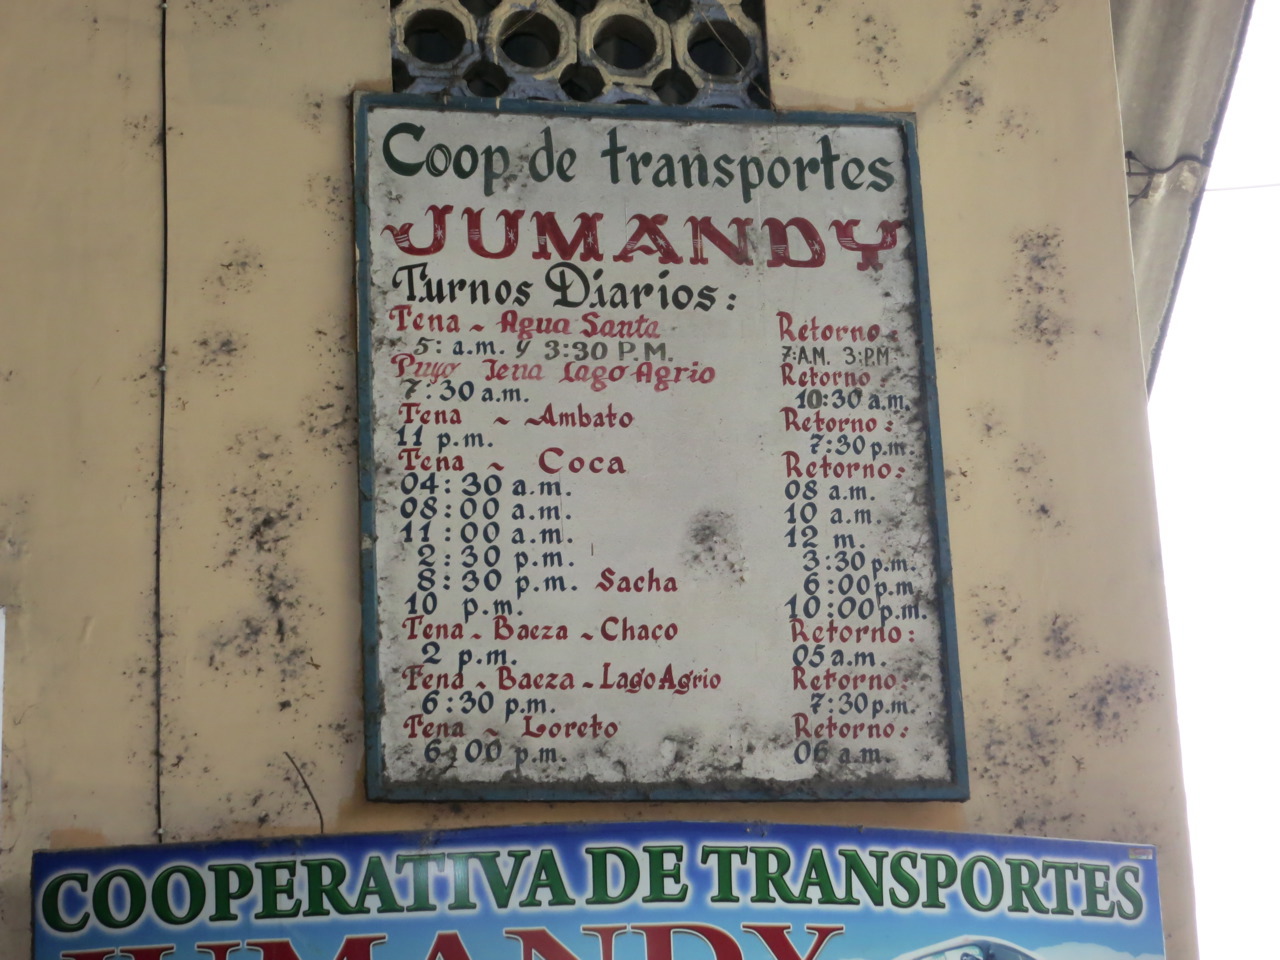 Coop de transportes
JUMANDY
Turnos Diarios:
Tena ~ Agua Santa Retorno
5: a.m. y 3:30 P.M. 7:A.M. 3:P.M
Puyo Tena Lago Agrio Retorno
7:30 a.m. 10:30 a.m.
Tena ~ Ambato Retorno:
11 p.m. 7:30 p.m.
Tena ~ Coca Retorno:
04:30 a.m. 08 a.m.
08:00 a.m. 10 a.m.
11:00 a.m. 12 m.
2:30 p.m. 3:30 p.m.
8:30 p.m. Sacha 6:00 p.m.
10 p.m. 10:00 p.m.
Tena ~ Baeza ~ Chaco Retorno:
2 p.m. 05 a.m.
Tena ~ Baeza ~ Lago Agrio Retorno:
6:30 p.m. 7:30 p.m.
Tena ~ Loreto Retorno:
6:00 p.m. 06 a.m.
COOPERATIVA DE TRANSPORTES
JUMANDY